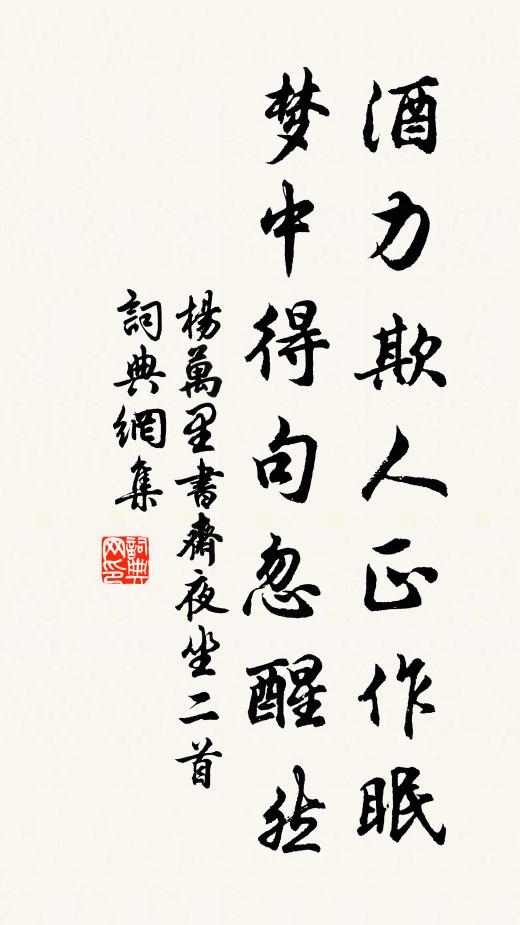 酒力欺人正作眠
梦中得句忽醒然
楊萬里書齋夜坐二首
詞典網集
詞典网印